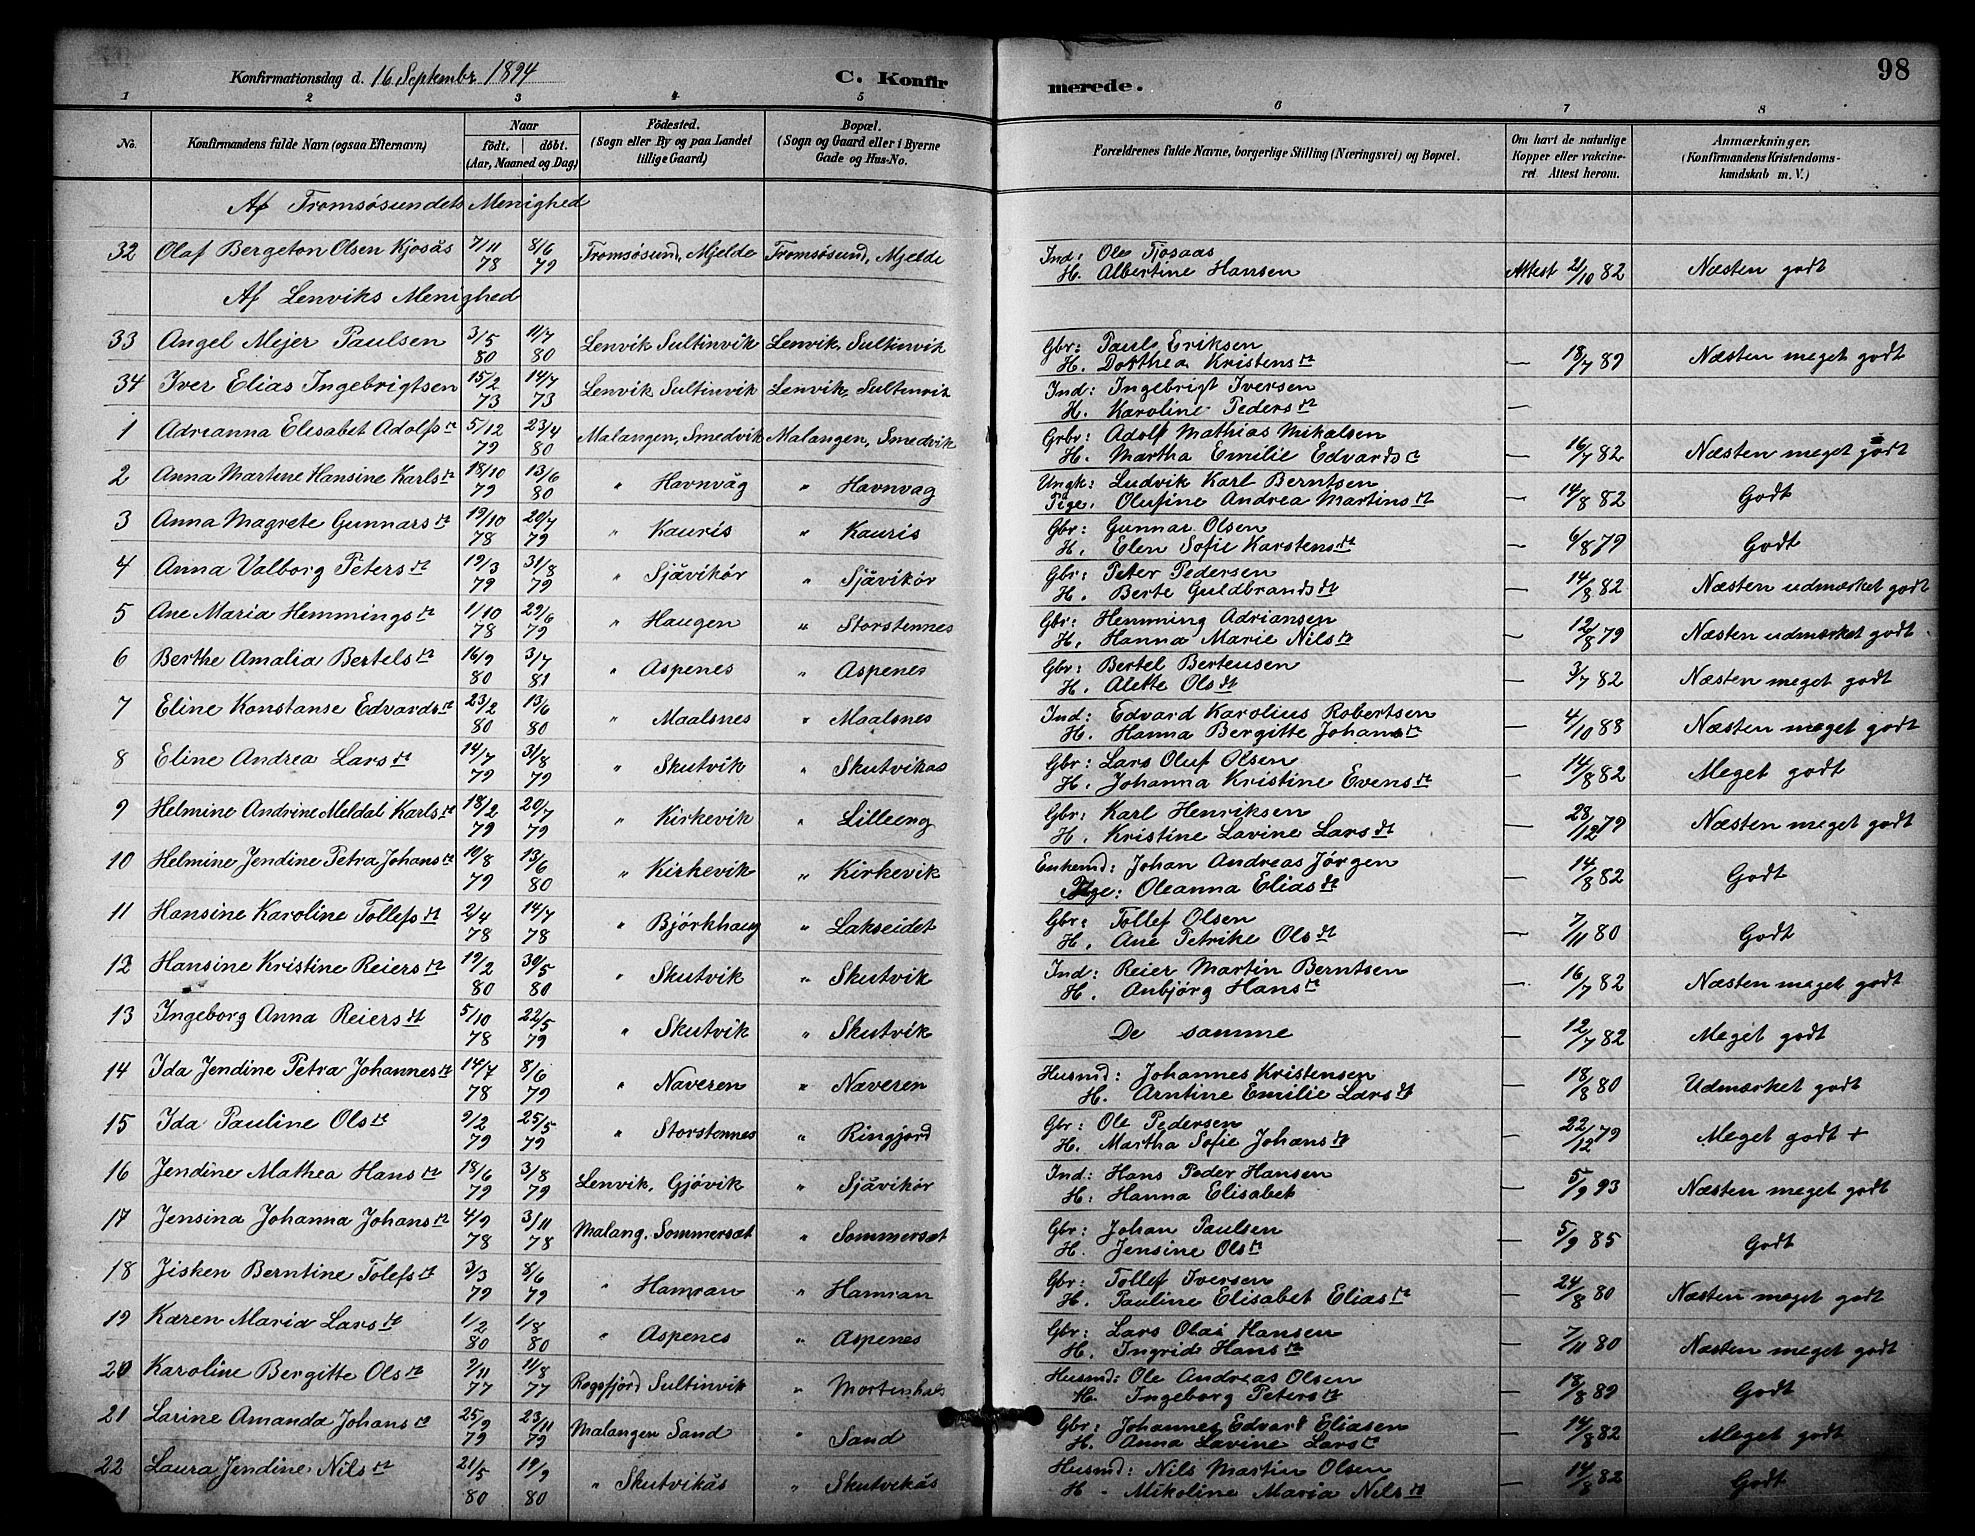 Konfirmationsdag d. 16 Septembr 1894 C. Konfir merede. 98
1 2 3 4 5 6 7 8
No. Konfirmandens fulde Navn (ogsaa Efternavn) Naar født. døbt. (Aar, Maaned og Dag) Fødested. (Sogn eller By og paa Landet tillige Gaard) Bopæl. (Sogn og Gaard eller i Byerne Gade og Hus-No. Forældrenes fulde Navne, borgerlige Stilling (Næringsvei) og Bopæl. Om havt de naturlige Kopper eller vakcineret. Attest herom. Anmærkninger. (Konfirmandens Kristendomskundskab m. V.)
Af Tromsøsundets Menighed
32 Olaf Bergeton Olsen Kjosås 7/11 78 8/6 79 Tromsøsund, Mjelde Tromsøsund, Mjelde Ind: Ole Tjosaas H. Albertine Hansen Attest 21/10 82 Næsten godt
Af Lenviks Menighed
33 Angel Mejer Paulsen 3/5 80 11/7 80 Lenvik Sultinvik Lenvik, Sultinvik Gbr: Paul Eriksen H. Dorthea Kristensdt — 18/7 89 Næsten meget godt
34 Iver Elias Ingebrigtsen 15/2 73 14/7 73 Lenvik Sultinvik Lenvik, Sultinvik Ind: Ingebrigt Iversen H. Karoline Pedersdt —
1 Adrianna Elisabet Adolfsdt 5/12 79 23/4 80 Malangen, Smedvik Malangen, Smedvik Grbr: Adolf Mathias Mikalsen H. Martha Emilie Edvardsdt — 16/7 82 Næsten meget godt
2 Anna Martine Hansine Karlsdt 18/10 79 13/6 80 " Havnvåg " Havnvag Ungk: Ludvik Karl Berntsen Pige. Olufine Andrea Martinsdt — 14/8 82 Godt
3 Anna Magrete Gunnarsdt 19/10 78 20/7 79 " Kauris " Kauris Gbr: Gunnar Olsen H. Elen Sofie Karstensdt — 6/8 79 Godt
4 Anna Valborg Petersdt 19/3 79 31/8 79 " Sjåvikør " Sjåvikør Gbr: Peter Pedersen H. Berte Guldbrandsdt — 14/8 82 Næsten udmærket godt
5 Ane Maria Hemmingsdt 1/10 78 29/6 79 " Haugen " Storstennes Gbr: Hemming Adriansen H. Hanna Marie Nilsdt — 12/8 79 Næsten udmærket godt
6 Berthe Amalia Bertelsdt 16/9 80 3/7 81 " Aspenes " Aspenes Gbr: Bertel Berteusen H. Alette Olsdt — 3/7 82 Næsten meget godt
7 Eline Konstanse Edvardsdt 23/2 80 13/6 80 " Maalsnes " Maalsnes Ind: Edvard Karolius Robertsen H. Hanna Bergitte Johansdt — 4/10 83 Næsten meget godt
8 Eline Andrea Larsdt 14/7 79 31/8 79 " Skutvik " Skutvikås Gbr: Lars Oluf Olsen H. Johanna Kristine Evensdt — 14/8 82 Meget godt
9 Helmine Andrine Meldal Karlsdt 18/2 79 20/7 79 " Kirkevik " Lilleeng Gbr: Karl Henriksen H. Kristine Lavine Larsdt — 28/12 79 Næsten meget godt
10 Helmine Jendine Petra Johansdt 19/8 79 13/6 80 " Kirkevik " Kirkevik Enkemd: Johan Andreas Jørgen Pige: Oleanna Eliasdt — 14/8 82 Godt
11 Hansine Karoline Tollefsdt 2/4 78 14/7 78 " Bjørkhaug " Lakseidet Gbr: Tollef Olsen H. Ane Petrike Olsdt — 7/11 80 Godt
12 Hansine Kristine Reiersdt 19/2 80 30/5 80 " Skutvik " Skutvik Ind: Reier Martin Berntsen H. Anbjørg Hansdt — 16/7 82 Næsten meget godt
13 Ingeborg Anna Reiersdt 5/10 78 22/5 79 " Skutvik " Skutvik De samme — 12/7 82 Meget godt
14 Ida Jendine Petra Johannesdt 14/7 78 8/6 79 " Naveren " Næveren Husmd: Johannes Kristensen H. Arntine Emilie Larsdt — 18/8 80 Udmærket godt
15 Ida Pauline Olsdt 9/2 79 25/5 79 " Storstennes " Ringjord Gbr: Ole Pedersen H. Martha Sofie Johansdt — 22/12 79 Meget godt +
16 Jendine Mathea Hansdt 18/6 79 3/8 79 Lenvik, Gjøvik " Sjåvikør Ind: Hans Peder Hansen H: Hanna Elisabet — 5/9 93 Næsten meget godt
17 Jensina Johanna Johansdt 4/9 78 3/11 78 Malang. Sommersæt " Sommersæt Gbr: Johan Paulsen H. Jensine Olsdt — 5/9 85 Godt
18 Jisken Berntine Tolefsdt 3/3 79 8/6 79 " Hamran " Hamran Gbr: Tollef Iversen H. Pauline Elisabet Eliasdt — 24/8 80 Næsten meget godt
19 Karen Maria Larsdt 1/2 80 1/8 80 " Aspenes " Aspenes Gbr: Lars Olai Hansen H. Ingrid Hansdt — 7/11 80 Næsten meget godt
20 Karoline Bergitte Olsdt 2/11 77 1/8 77 Rogsfjord Sultinvik " Mortenhals Husmd: Ole Andreas Olsen H. Ingeborg Petersdt — 18/8 89 Godt
21 Larine Amanda Johansdt 25/9 79 23/11 79 Malangen Sand " Sand Gbr: Johannes Edvart Eliasen H. Anna Lavine Larsdt — 14/8 82 Meget godt
22 Laura Jendine Nilsdt 21/5 80 19/9 80 " Skutvikås " Skutvikås Husmd: Nils Martin Olsen H - Mikoline Maria Nilsdt — 14/8 82 Godt